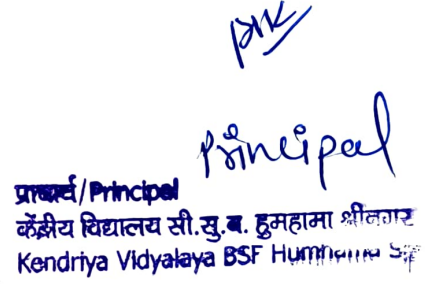 Principal
प्राचार्य/Principal
केंद्रीय विद्यालय सी.सु.ब. हुमहामा श्रीनगर
Kendriya Vidyalaya BSF Humhama